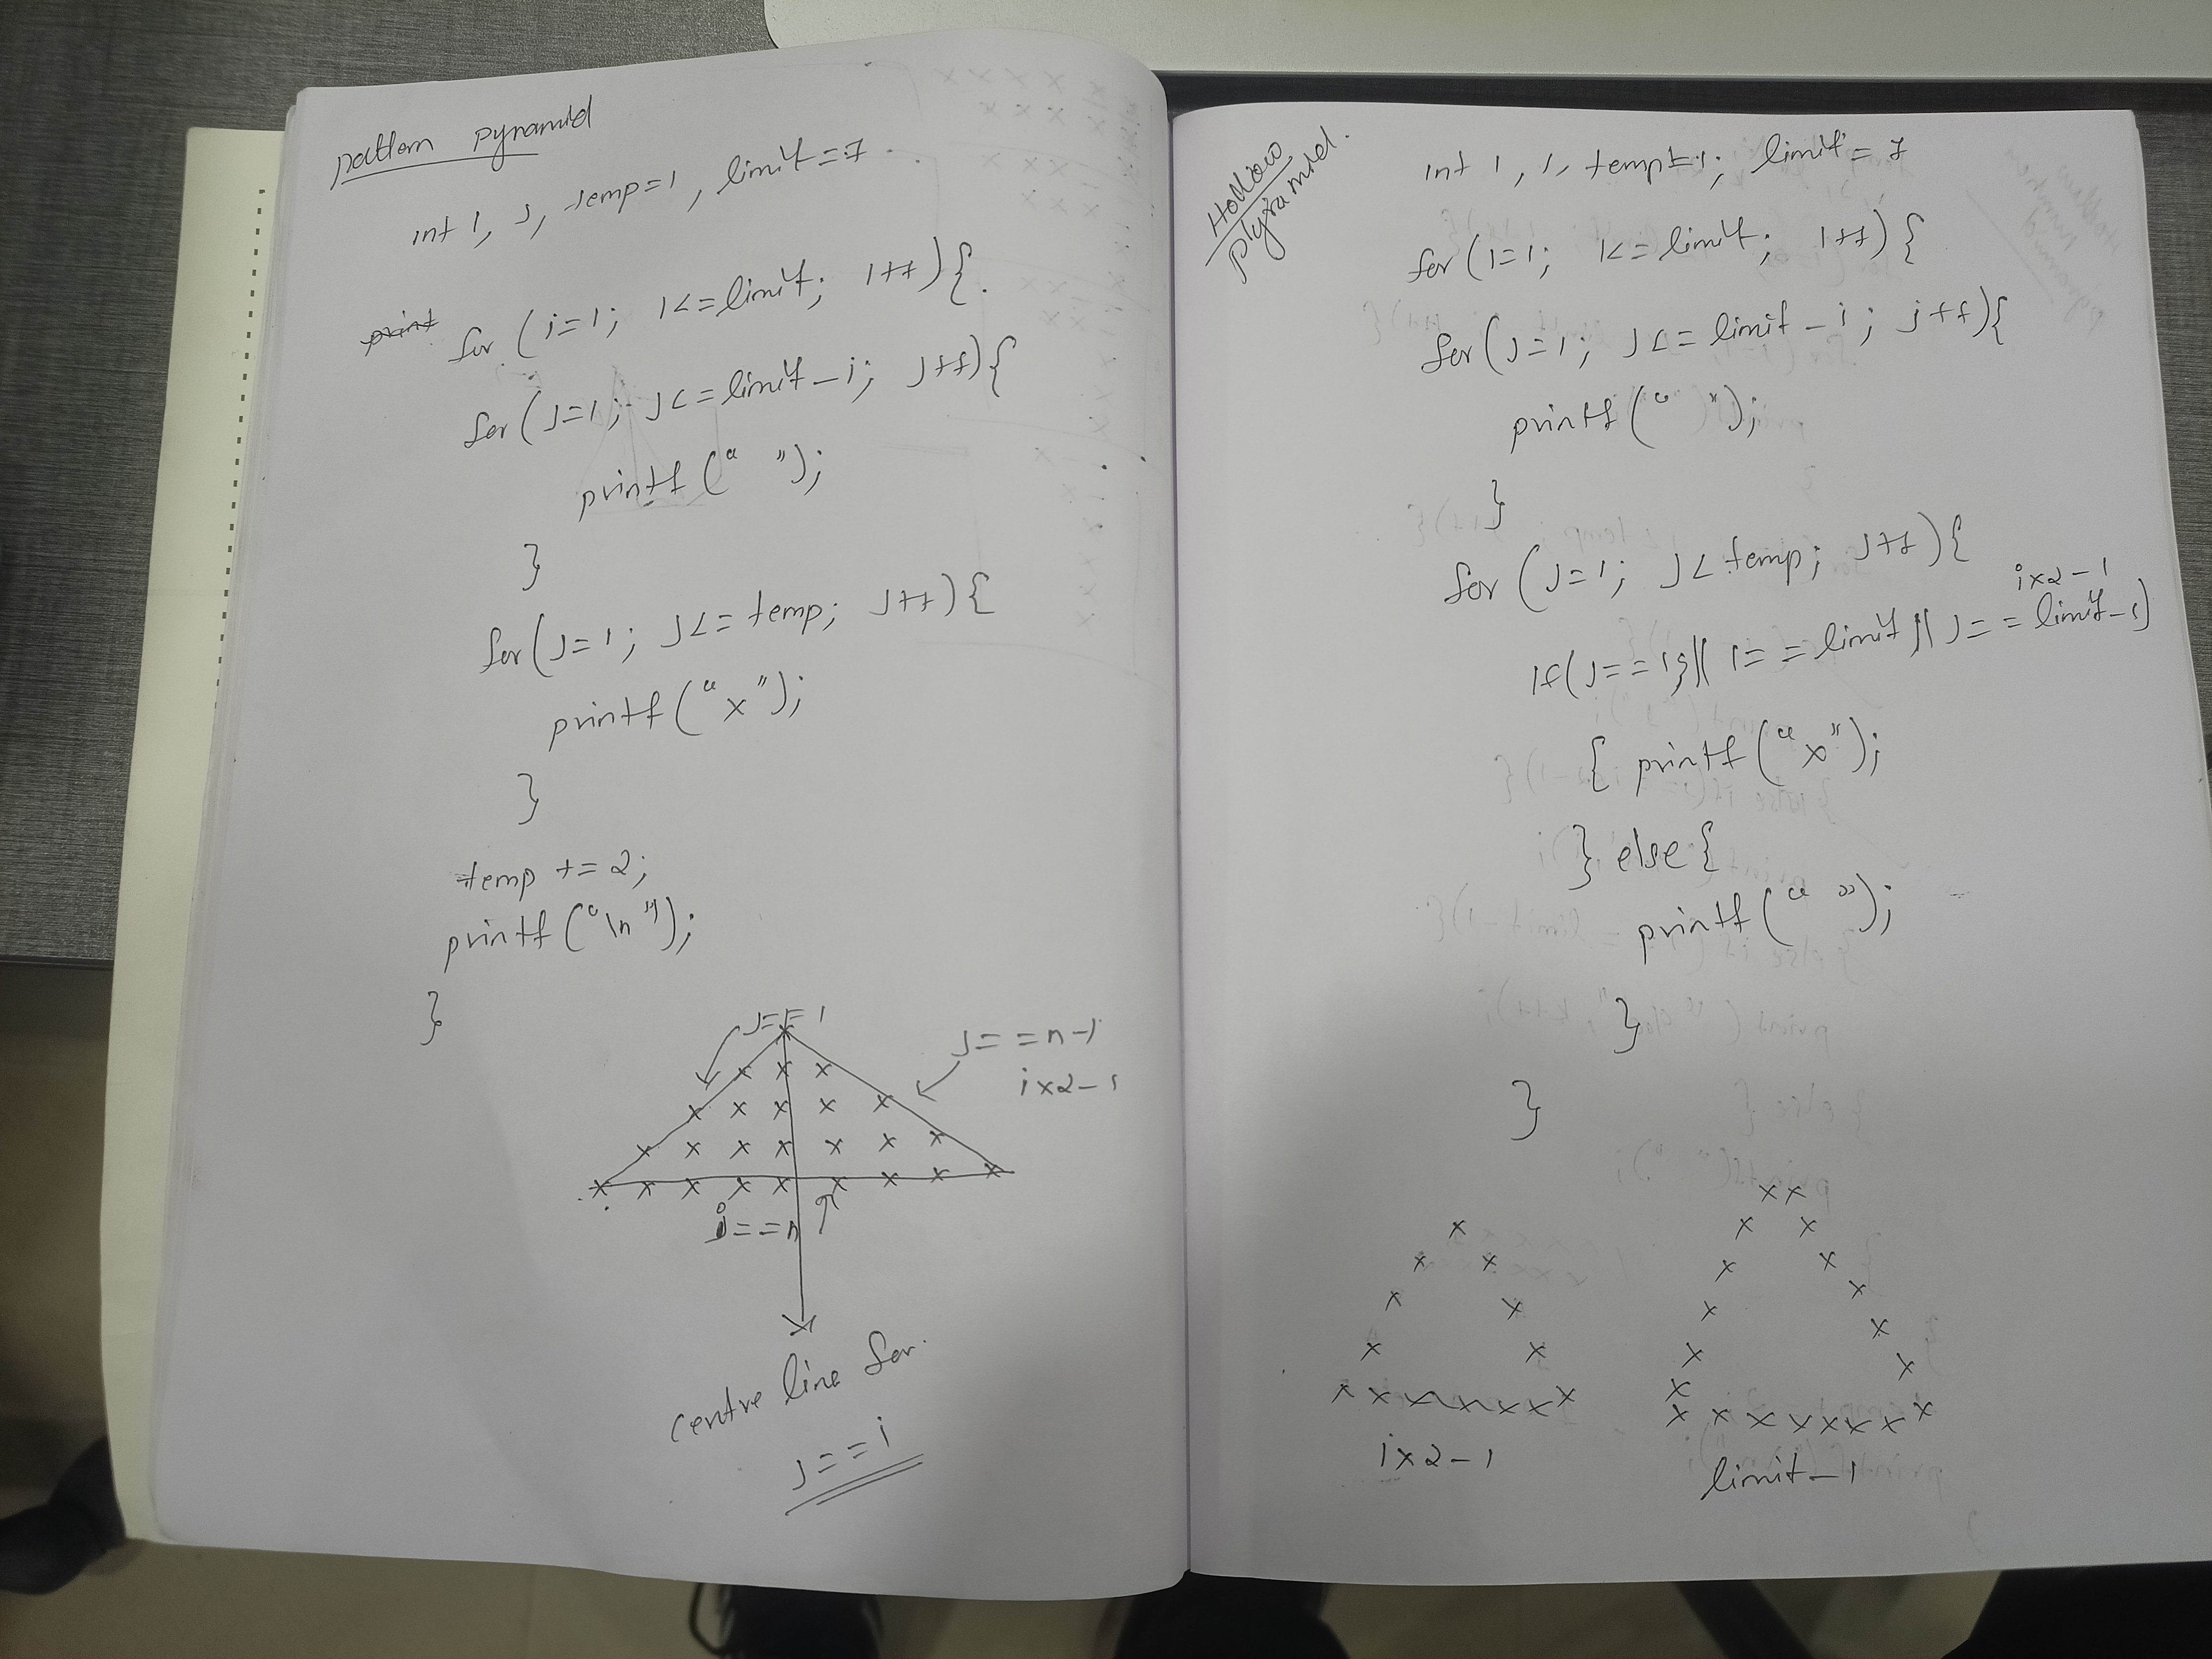 pattern pyramid
int i, j, temp=1, limit=7
print for (i=1; i<=limit; i++){
for (j=1; j<=limit-i; j++){
printf(" ");
}
for (j=1; j<=temp; j++){
printf("x");
}
temp += 2;
printf("\n");
}
j==1
j==n-1
ix2-1
x
x x x
x x x x x
x x x x x x x
x x x x x x x x x
i==n
centre line for
j==i
Hollow
pyramid.
int i, j, temp=1; limit=7
for (i=1; i<=limit; i++){
for (j=1; j<=limit-i; j++){
printf(" ");
}
for (j=1; j<temp; j++){
ix2-1
if(j==1 || i==limit || j==limit-1)
{ printf("x");
} else {
printf(" ");
}
}
ix2-1
limit-1